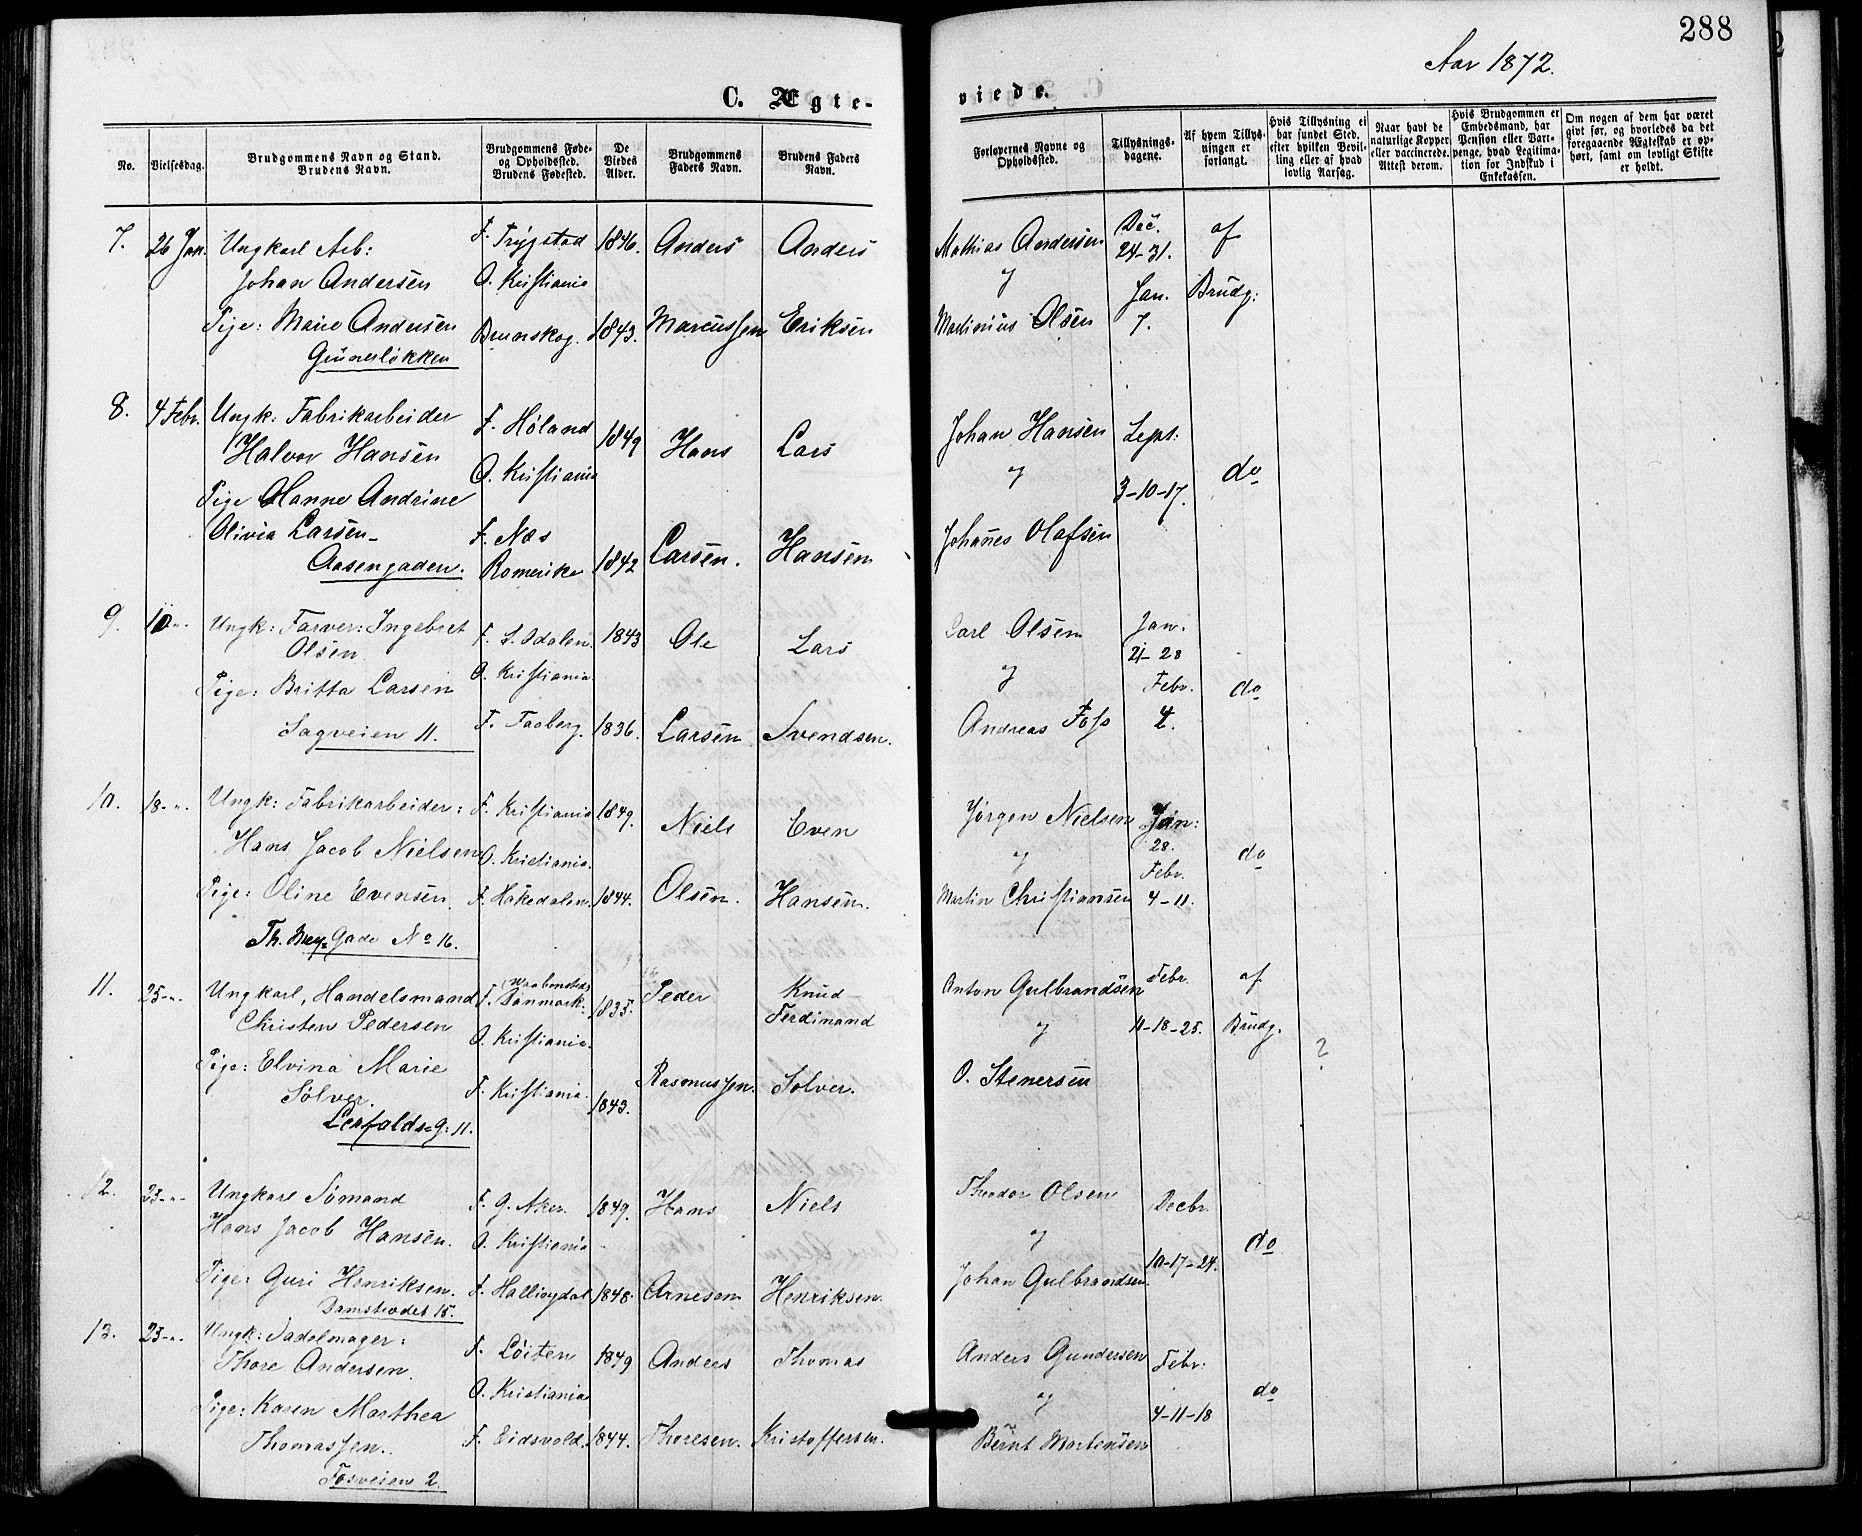 288
Aar 1872.
C. Ægte-
viede.
No.
Vielsesdag.
Brudgommens Navn og Stand.
Brudens Navn.
Brudgommens Føde-
og Opholdssted.
Brudens Fødested.
De
Viedes
Alder.
Brudgommens
Faders Navn.
Brudens Faders
Navn.
Forlovernes Navne og
Opholdssted.
Tillysnings-
dagene.
Af hvem Tillys-
ningen er
forlangt.
Hvis Tillysning ei
har fundet Sted,
efter hvilken Bevil-
ling eller af hvad
lovlig Aarsag.
Naar havt de
naturlige Kopper
eller vaccinerede.
Attest derom.
Hvis Brudgommen er
Embedsmand, har
Pension eller Vart-
penge, hvad Legitima-
tion for Indskud i
Enkekassen.
Om nogen af dem har været
gift før, og hvorledes da det
foregaaende Ægteskab er op-
hørt, samt om lovligt Skifte
er holdt.
7. 26 Jan. Ungkarl Arb: F. Trygstad 1846. Anders Anders Mathias Andersen Dec. 24-31. af
Johan Andersen O. Kristiania og Jan. Brudg:
Pige: Marie Andersen Brunskog. 1843. Marcussen Eriksen Martinius Olsen 7.
Grünerløkken
8. 4 Febr. Ungk: Fabrikarbeider F. Høland 1849 Hans Lars Johan Hansen Sept:
Halvor Hansen O. Kristiania og 3-10-17. do
Pige Hanne Andrine
Olivia Larsen- F. Næs Johanes Olafsen
Aasengaden. Romerike 1842 Larsen. Hansen
9. 10-"- Ungk: Farver: Ingebret F. S. Odalen. 1843 Ole Lars Carl Olsen Jan.
Olsen 21-28
Pige: Britta Larsen O. Kristiania. og Febr. do
Sagveien 11. F. Faaberg. 1836. Larsen Svendsen. Andreas Foss 4.
10. 18-"- Ungk: Fabrikarbeider: F. Kristiania 1849. Niels Even Jørgen Nielsen Jan:
Hans Jacob Nielsen O. Kristiania. og 28. Febr. do
Pige: Oline Evensen F. Hakedalen. 1844. Olsen. Hansen. Martin Christiansen 4-11.
Th. Mey. Gade No 16.
11. 25-"- Ungkarl, Handelsmand F. Danmark. 1835. Peder Knud Ferdinand Anton Gulbrandsen Febr. af
Christen Pedersen O. Kristiania. og 11-18-25. Brudg.
?
Pige: Elvina Marie F. Kristiania. 1843. Rasmussen. Sølver. O. Stenersen
Sølver.
Leirfalds=g: 11.
12. 23-"- Ungkarl Sømand F. G. Aker. 1849. Hans Niels Theodor Olsen Decbr.
Hans Jacob Hansen. O. Kristiania og do
Pige: Guri Henriksen. F. Hallingdal 1848. Arnesen Henriksen. Johan Gulbrandsen 10-17-24.
Damstrædet 15.
13. 23-"- Ungk: Sadelmager: F. Løiten 1849 Anders Thomas Anders Gundersen Febr:
Thore Andersen. O. Kristiania og do
Pige: Karen Marthea 4-11-18
Thomassen. F. Eidsvold. 1844. Thoresen. Kristoffersen. Bernt Mortensen
Fosveien 2.